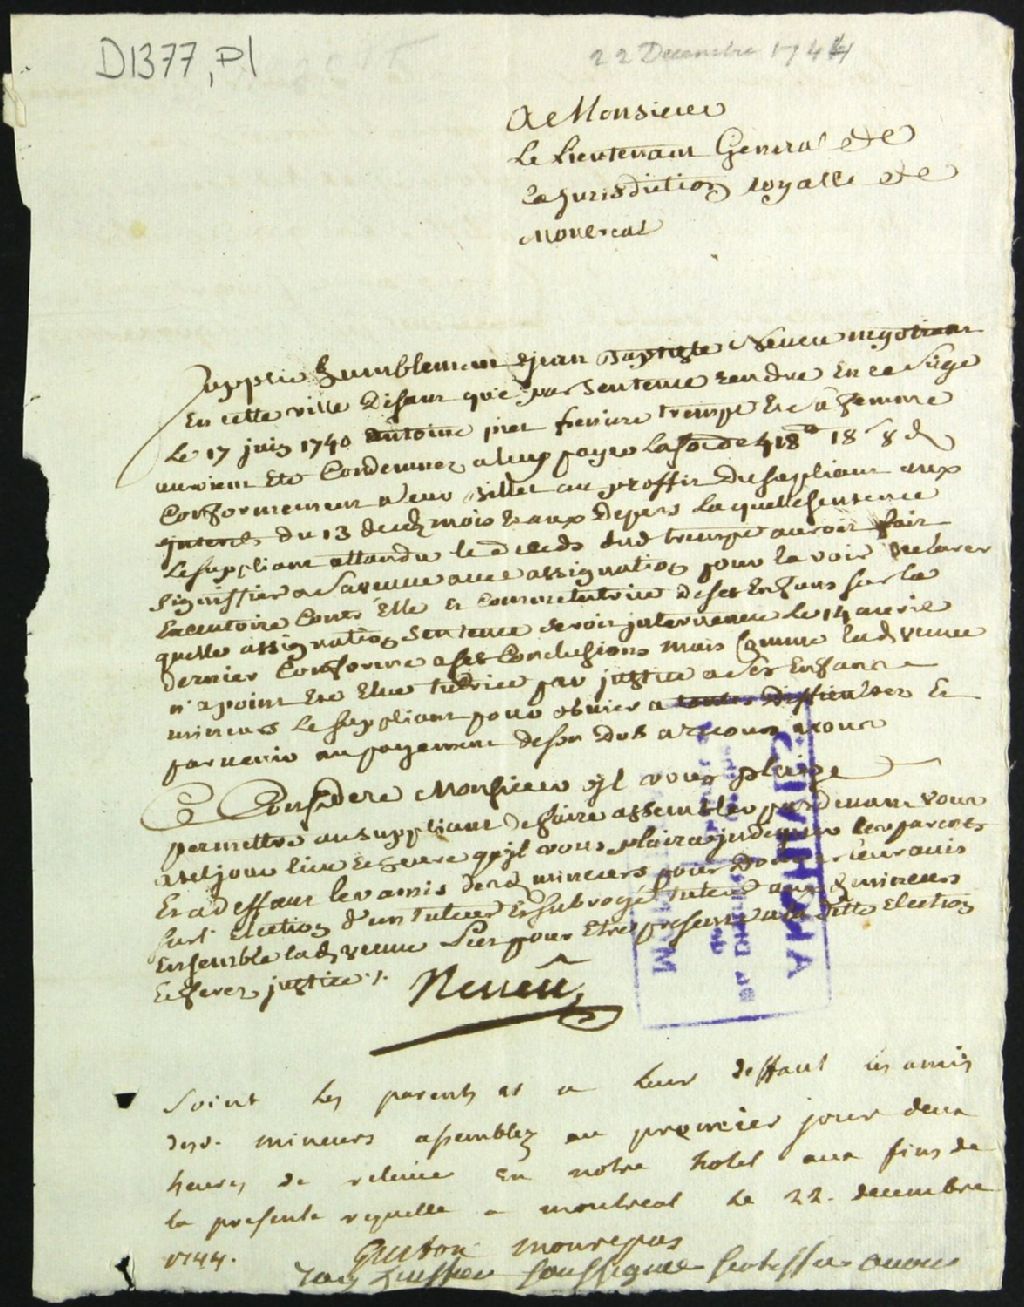 D1377, P1
22 Decembre 1744
A Monsieur
Le Lieutenant General de
la Jurisdiction royalle de
Montreal
Supplie humblement Jean Baptiste Neveu negotiant
En cette ville Disant que par Sentence rendue En ce Siege
Le 17 juin 1740 Antoine et sa femme
auroient Eté Condemnez a luy payer la so de 418 18 s 8 d
Conformement a leur billet au proffit du supliant aux
interets du 13 desd mois & an depuis laquelle sentence
Le suppliant attandu le deceds dud auroit fait
signiffier a la veuve avec assignation pour la voir declarer
Executoire Contr Elle et Comme tutrice de ses Enfans sur la
quelle assignation Sentence seroit intervenue le 14 avril
dernier Conforme a ses Conclusions mais Comme lad veuve
n'a point Eté Elue tutrice par justice a ses Enfans
mineurs le suppliant pour obvier a toutes difficultez Et
parvenir au payement de son dub a recours
Ce Consideré Monsieur il vous plaise
permettre au suppliant de faire assembler pardevant vous
a tel jour lieu et heure qu'il vous plaira les parents
Et a deffaut les amis desd mineurs pour donner leur avis
sur l' Election d'un tuteur Et subrogé tuteur auxd mineurs
Ensemble lad veuve pour Etre presente a lad Election
Et ferez justice /.
Neveu
ARCHIVES
MONTREAL
Soient les parents et a leur deffaut les amis
desd. mineurs assemblez au premier jour deux
heures de relevée En notre hotel aux fins de
la presente requette a montreal le 22. decembre
1744.
Guiton monrepos
soussigné